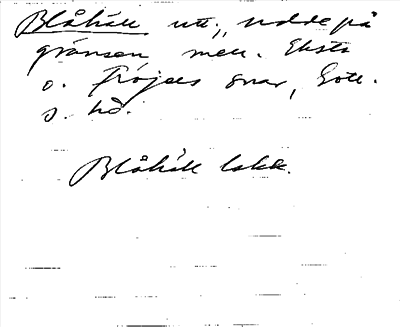 Blåhäll utt., udde på
gränsen mell. Eksta
o. Fröjels snar, Gotl.
s. hd.
Blåhäll lokk.